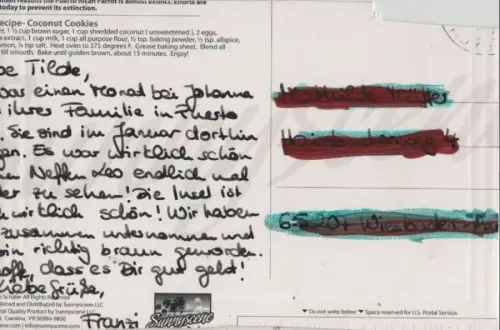 man reasons the Puerto Rican Parrot is almost extinct. Efforts are
today to prevent its extinction.
ecipe- Coconut Cookies
r, 1 ½ cup brown sugar, 1 cup shredded coconut ( unsweetened ), 2 eggs,
extract, 1 cup milk, 1 cup all purpose flour, ½ tsp. baking powder, ½ tsp. allspice,
mon, ¼ tsp salt. Heat oven to 375 degrees F. Grease baking sheet. Blend all
till smooth. Bake until golden brown, about 15 minutes. Enjoy!
be Tilde,
war einen Monat bei Johanna
ihrer Familie in Puerto
. Sie sind im Januar dorthin
gen. Es war wirklich schön
en Neffen Leo endlich mal
der zu sehen! Die Insel ist
h wirklich schön! Wir haben
zusammen unternommen und
bin richtig braun geworden.
off, dass es Dir gut geht!
Liebe Grüße,
Franzi
Schafer All Rights Reserved
blished and Distributed by Sunnyscene LLC
tal Quality Product by Sunnyscene LLC
, Carolina, PR 00984-9800
ene.com | info@sunnyscene.com
Sunnyscene
▼ Do not write below ▼ Space reserved for U.S. Postal Service.